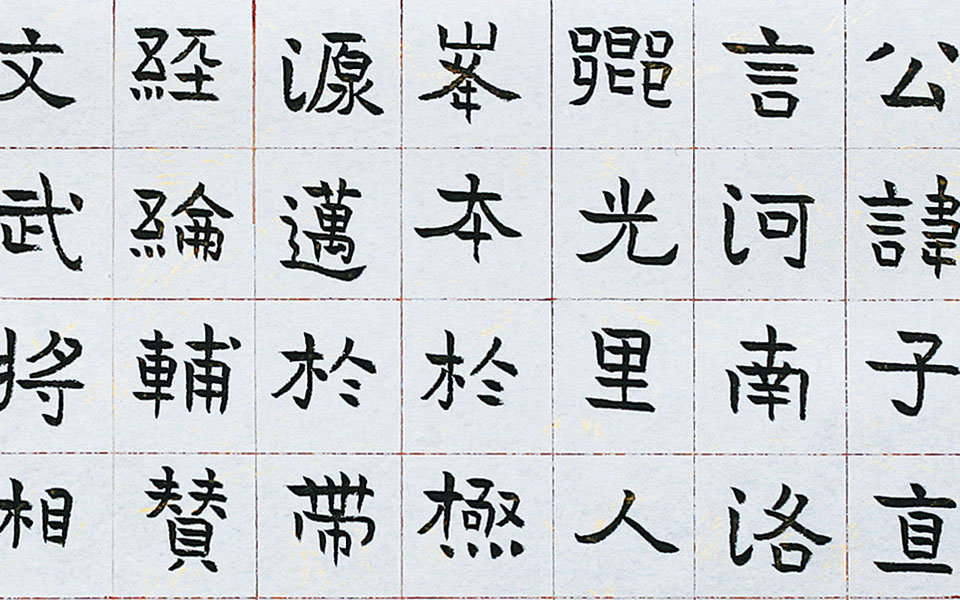 公諱子直
言河南洛
鄉光里人
峯本於極
源邁於帶
經綸輔賛
文武將相